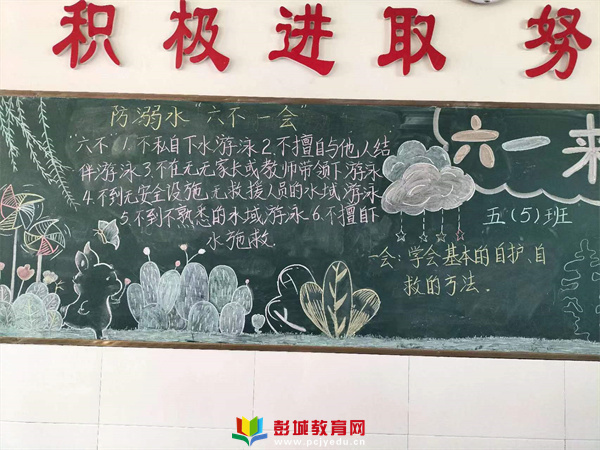 积极进取 努
防溺水“六不一会”
“六不 1.不私自下水游泳 2.不擅自与他人结
伴游泳 3.不在无无家长或教师带领下游泳
4.不到无安全设施,无救援人员的水域游泳
5.不到不熟悉的水域游泳 6.不擅自下
水施救
六一来
五(5)班
一会:学会基本的自护、自
救的方法.
彭城教育网
www.pcjyedu.cn